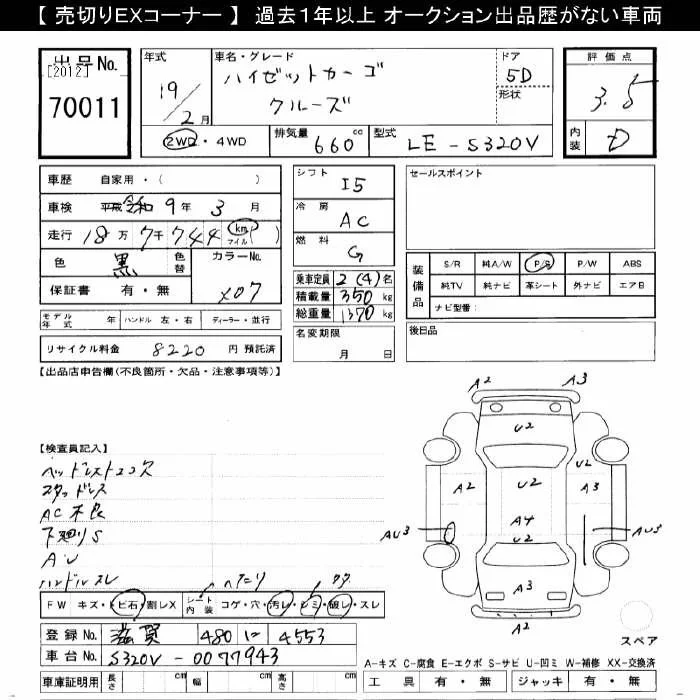 【 売切りEXコーナー 】 過去１年以上 オークション出品歴がない車両
出品No.
[2012]
70011
年式
19/2月
車名・グレード
ハイゼットカーゴ
クルーズ
ドア
5D
形状
評価点
3.5
内装 D
2WD・4WD 排気量 660cc 型式 LE-S320V
車歴 自家用・( )
車検 平成 令和 9年 3月
走行 18万7千744 km マイル ( )
色 黒 色替 カラーNo. X07
保証書 有・無
モデル年式 年 ハンドル 左・右 ディーラー・並行
リサイクル料金 8220 円 預託済
シフト I5
冷房 AC
燃料 G
乗車定員 2(4)名
積載量 350kg
総重量 1370kg
名変期限
月 日
セールスポイント
装備品 S/R 純A/W P/S P/W ABS
純TV 純ナビ 革シート 外ナビ エアB
ナビ型番:
後日品
【出品店申告欄(不良箇所・欠品・注意事項等)】
【検査員記入】
ヘッドレスト2コ欠
スタッドレス
AC不良
下廻りS
A.U
ハンドルスレ
ヘタリ
FW キズ・トビ石・割レX シート内装 コゲ・穴・汚レ・シミ・破レ・スレ
登録No. 滋賀 480 に 4553
車台No. S320V-0077943
車庫証明用 長さ cm 幅 cm 高さ cm
A2 A3
U2
U2
A2 U2 A3
A4
AU3 U2 AU3
A3
A2
スペア
A-キズ C-腐食 E-エクボ S-サビ U-凹ミ W-補修 XX-交換済
工具 有・無 ジャッキ 有・無